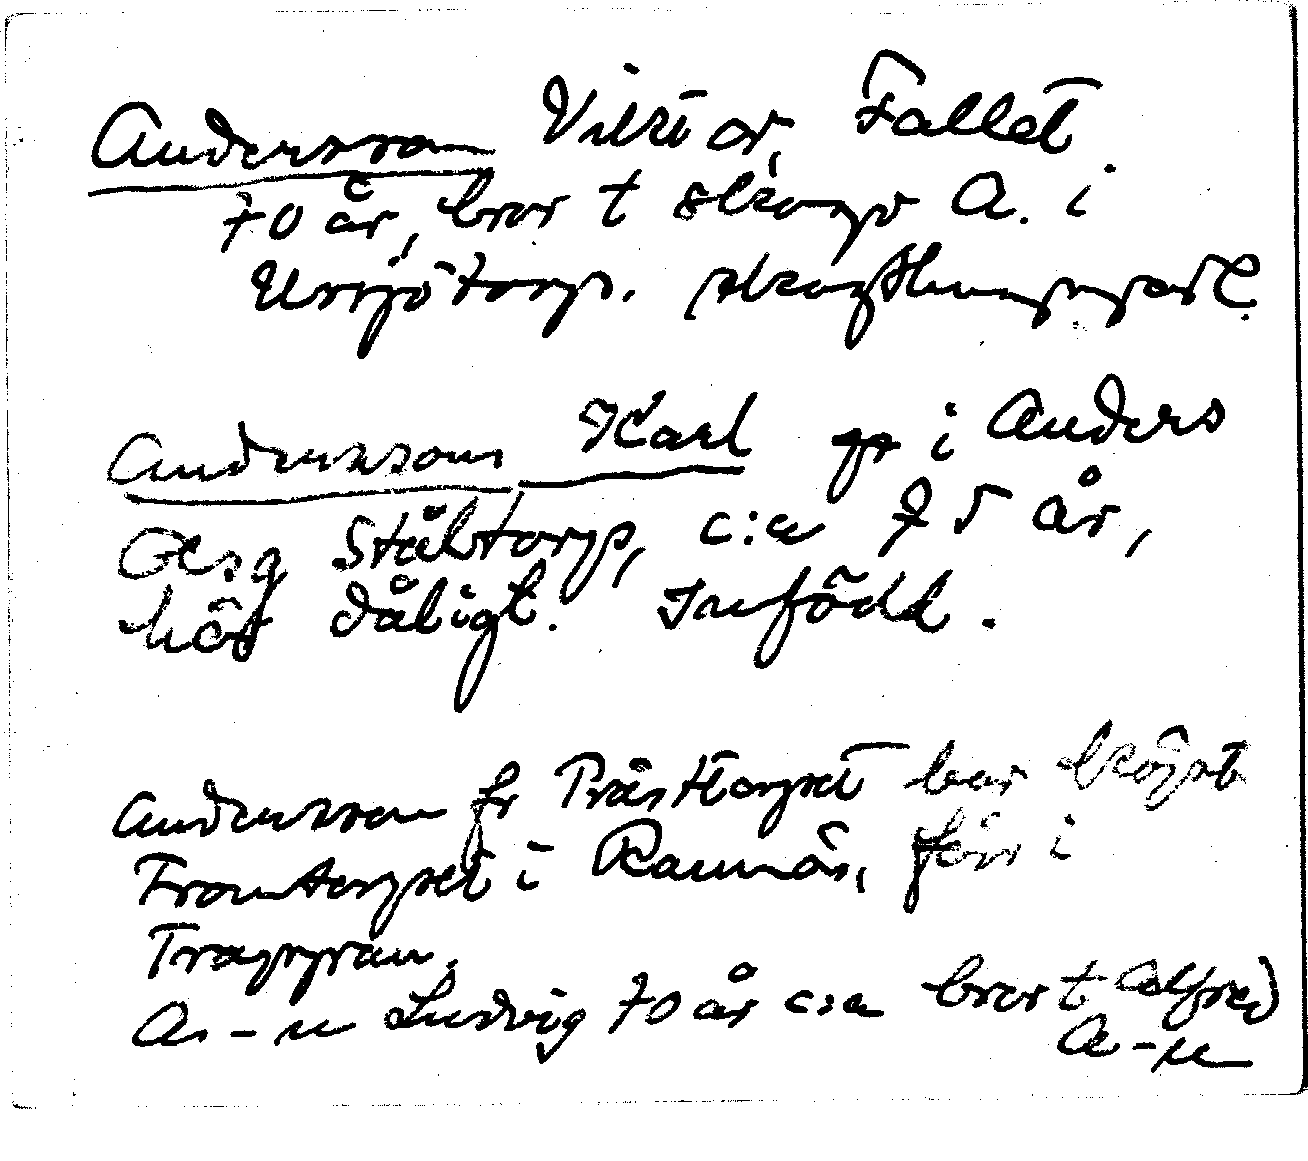 Andersson Viktor, Fallet.
70 år, bror t skogv A. i
Ursjötorp. skogshuggare.
Andersson Karl gg i Anders
Ols g Ståltorp, c:a 75 år,
hör dåligt. Infödd.
Andersson fr Prästtorpet har köpt
Fromtorpet i Ramnäs, förr i
Trappran.
A-n Ludvig 70 år c:a bror t Alfred
A-n